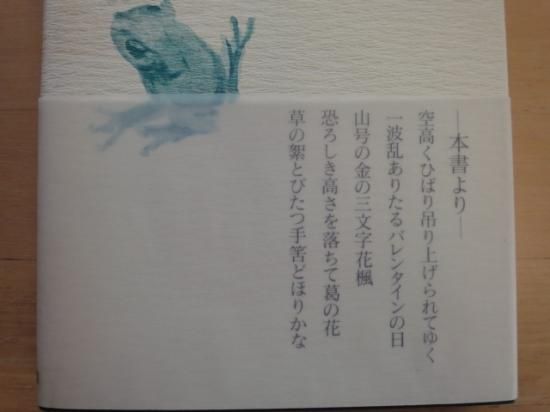 ―本書より―
空高くひばり吊り上げられてゆく
一波乱ありたるバレンタインの日
山号の金の三文字花楓
恐ろしき高さを落ちて葛の花
草の絮とびたつ手筈どほりかな